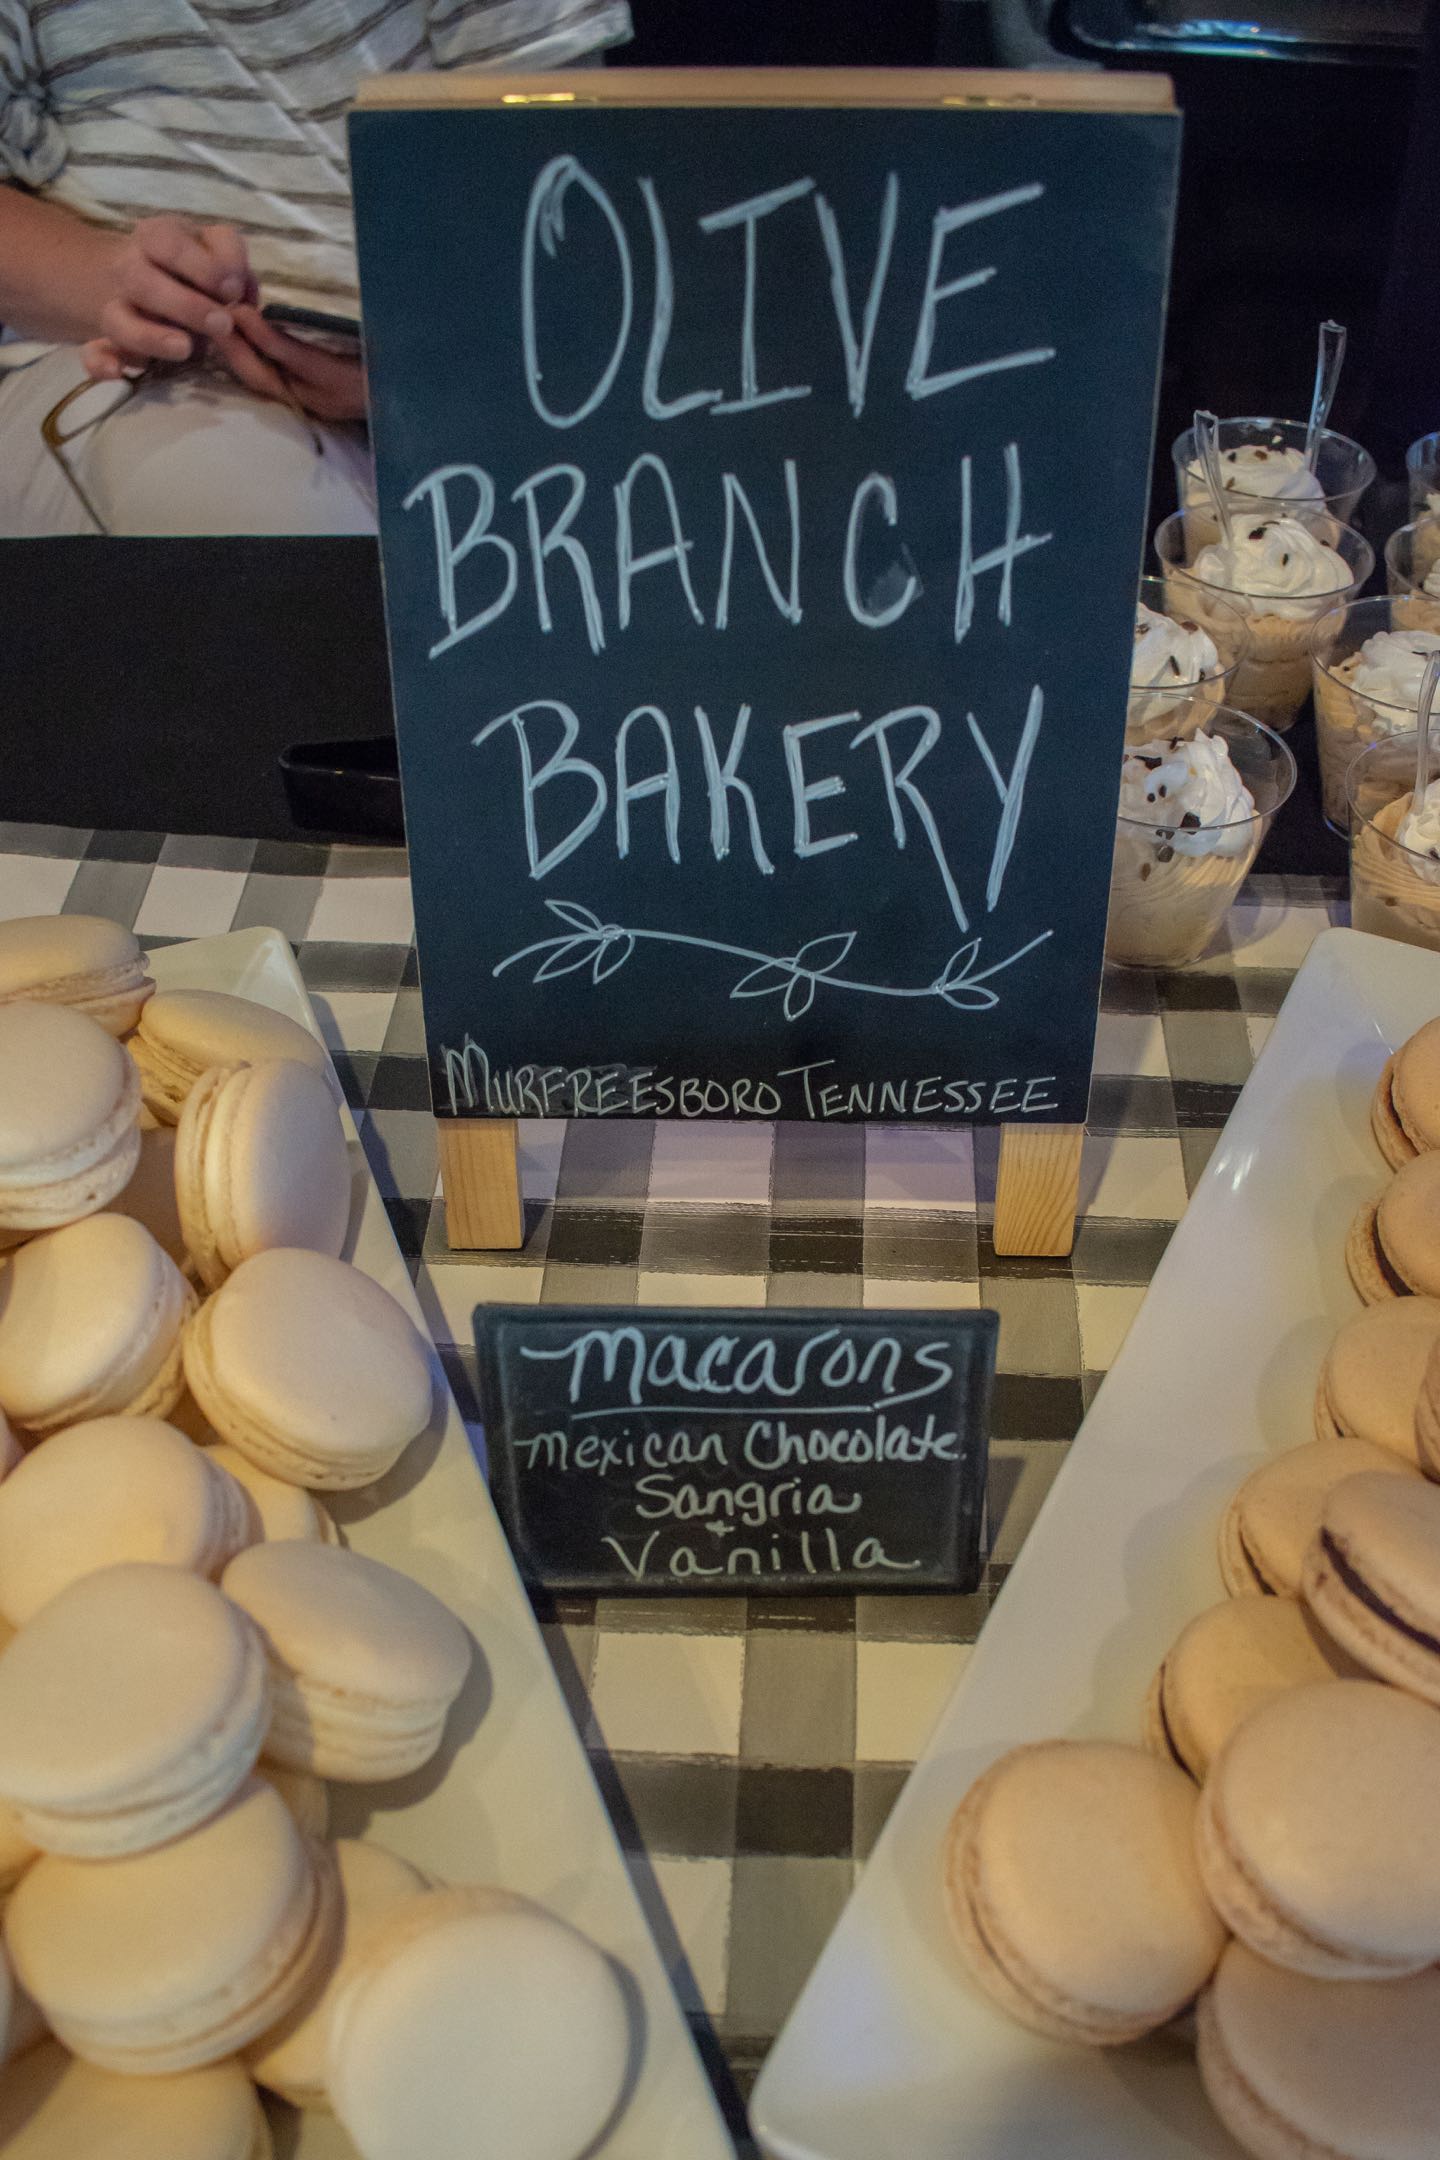 OLIVE
BRANCH
BAKERY
MURFREESBORO TENNESSEE
Macarons
Mexican Chocolate
Sangria
+
Vanilla